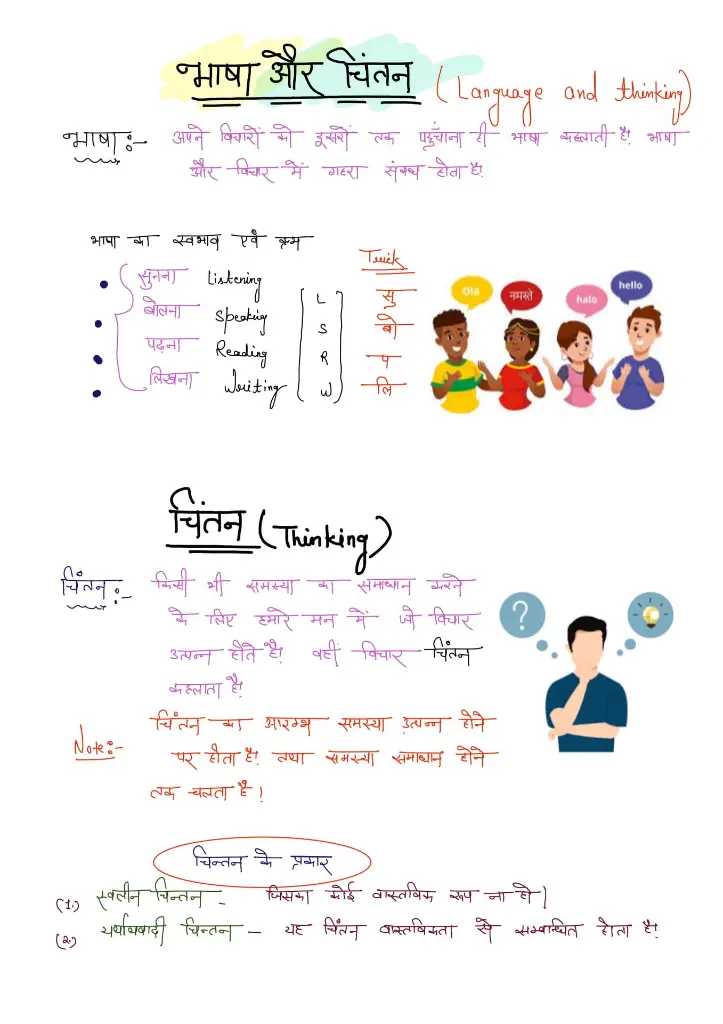 भाषा और चिंतन (Language and thinking)
भाषा:- अपने विचारों को दूसरों तक पहुँचाना ही भाषा कहलाती है। भाषा
और विचार में गहरा संबंध होता है।
भाषा का स्वभाव एवं क्रम
Trick
सुनना Listening L सु
बोलना Speaking S बो
पढ़ना Reading R प
लिखना Writing W लि
Olá
नमस्ते
halo
hello
चिंतन (Thinking)
चिंतन:- किसी भी समस्या का समाधान करने
के लिए हमारे मन में जो विचार
उत्पन्न होते है। वहीं विचार चिंतन
कहलाता है।
Note:- चिंतन का आरम्भ समस्या उत्पन्न होने
पर होता है। तथा समस्या समाधान होने
तक चलता है।
चिन्तन के प्रकार
(1.) स्वलीन चिन्तन - जिसका कोई वास्तविक रूप ना हो।
(2.) यर्थाथवादी चिन्तन - यह चिंतन वास्तविकता से सम्बन्धित होता है।